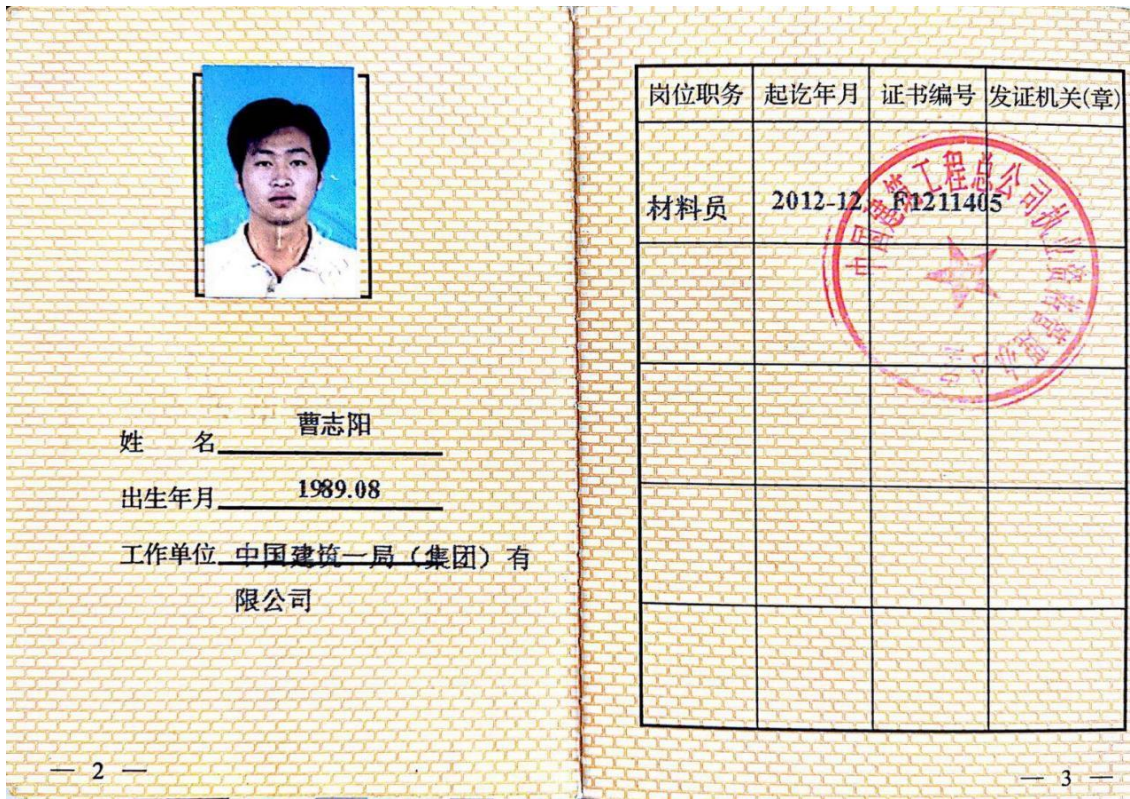 姓 名 曹志阳
出生年月 1989.08
工作单位 中国建筑一局（集团）有
限公司
— 2 —
岗位职务 起讫年月 证书编号 发证机关(章)
材料员 2012-12 F1211405
中国建筑工程总公司执业资格管理办公
— 3 —